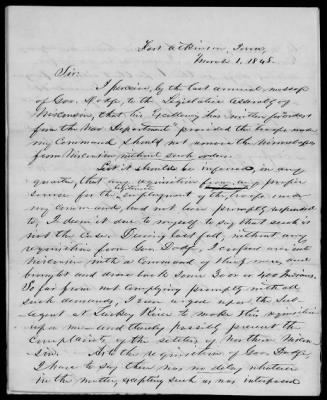 Fort Atkinson, Iowa,
March 1, 1848.
Sir:
I perceive, by the last annual message
of Gov. Dodge, to the Legislative Assembly of
Wisconsin, that his "Excellency has written
from the War Department" provided the troops under
my Command should not remove the Winnebagoes
from Wisconsin without such orders.
Lest it should be inferred in any
quarter, that any requisition from any proper
source for the legitimate employment of the troops under
my command, had not been promptly responded
to, I deem it due to myself to say that such is
not the case. During last fall, without any
requisition from Gov. Dodge, I crossed over into
Wisconsin with a command of thirty men, and
brought and drove back some 300 or 400 Indians.
So far from not complying promptly with all
such demands, I even urged upon the Sub-
agent at Turkey River to make this requisition
upon me and thereby possibly prevent the
complaints of the settlers of Northern Wiscon-
sin. As to the requisition of Gov. Dodge,
I have to say there was no delay whatever
in the matter, excepting such as was interposed